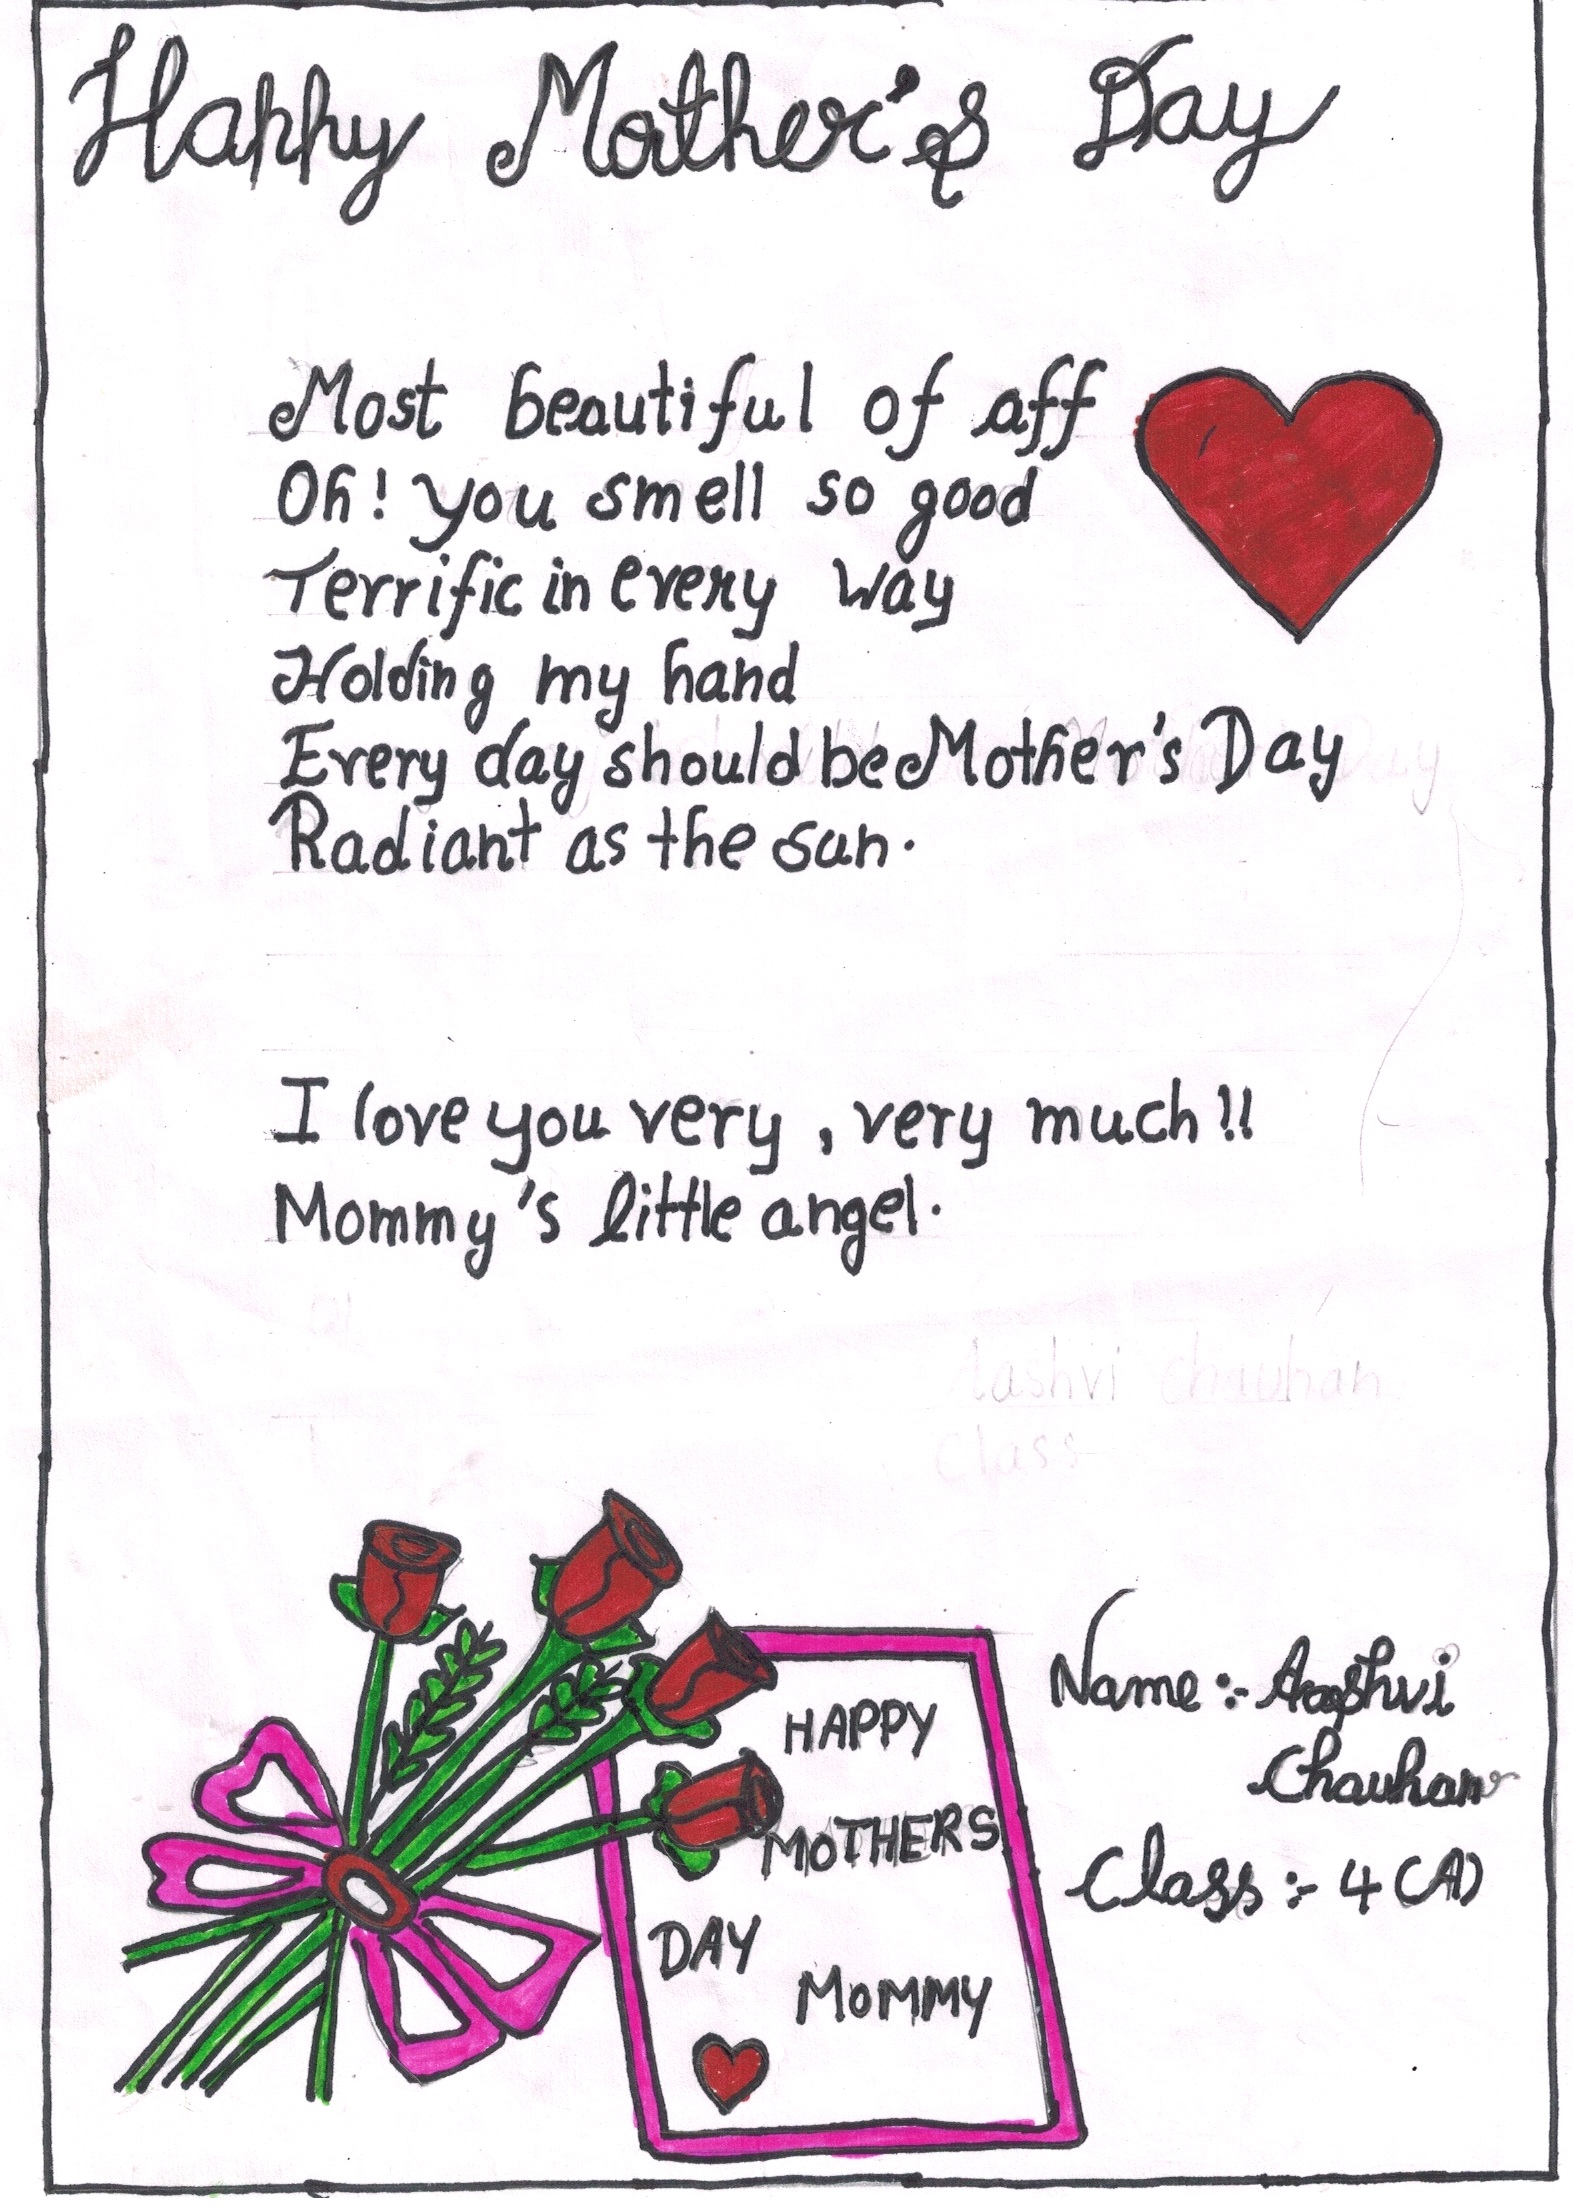 Happy Mother's Day
Most beautiful of aff
Oh! you smell so good
Terrific in every way
Holding my hand
Every day should be Mother's Day
Radiant as the sun.
I love you very, very much!!
Mommy's little angel.
Aashvi chauhan
Class
HAPPY
MOTHERS
DAY
MOMMY
Name :- Aashvi
Chauhan
Class :- 4 (A)